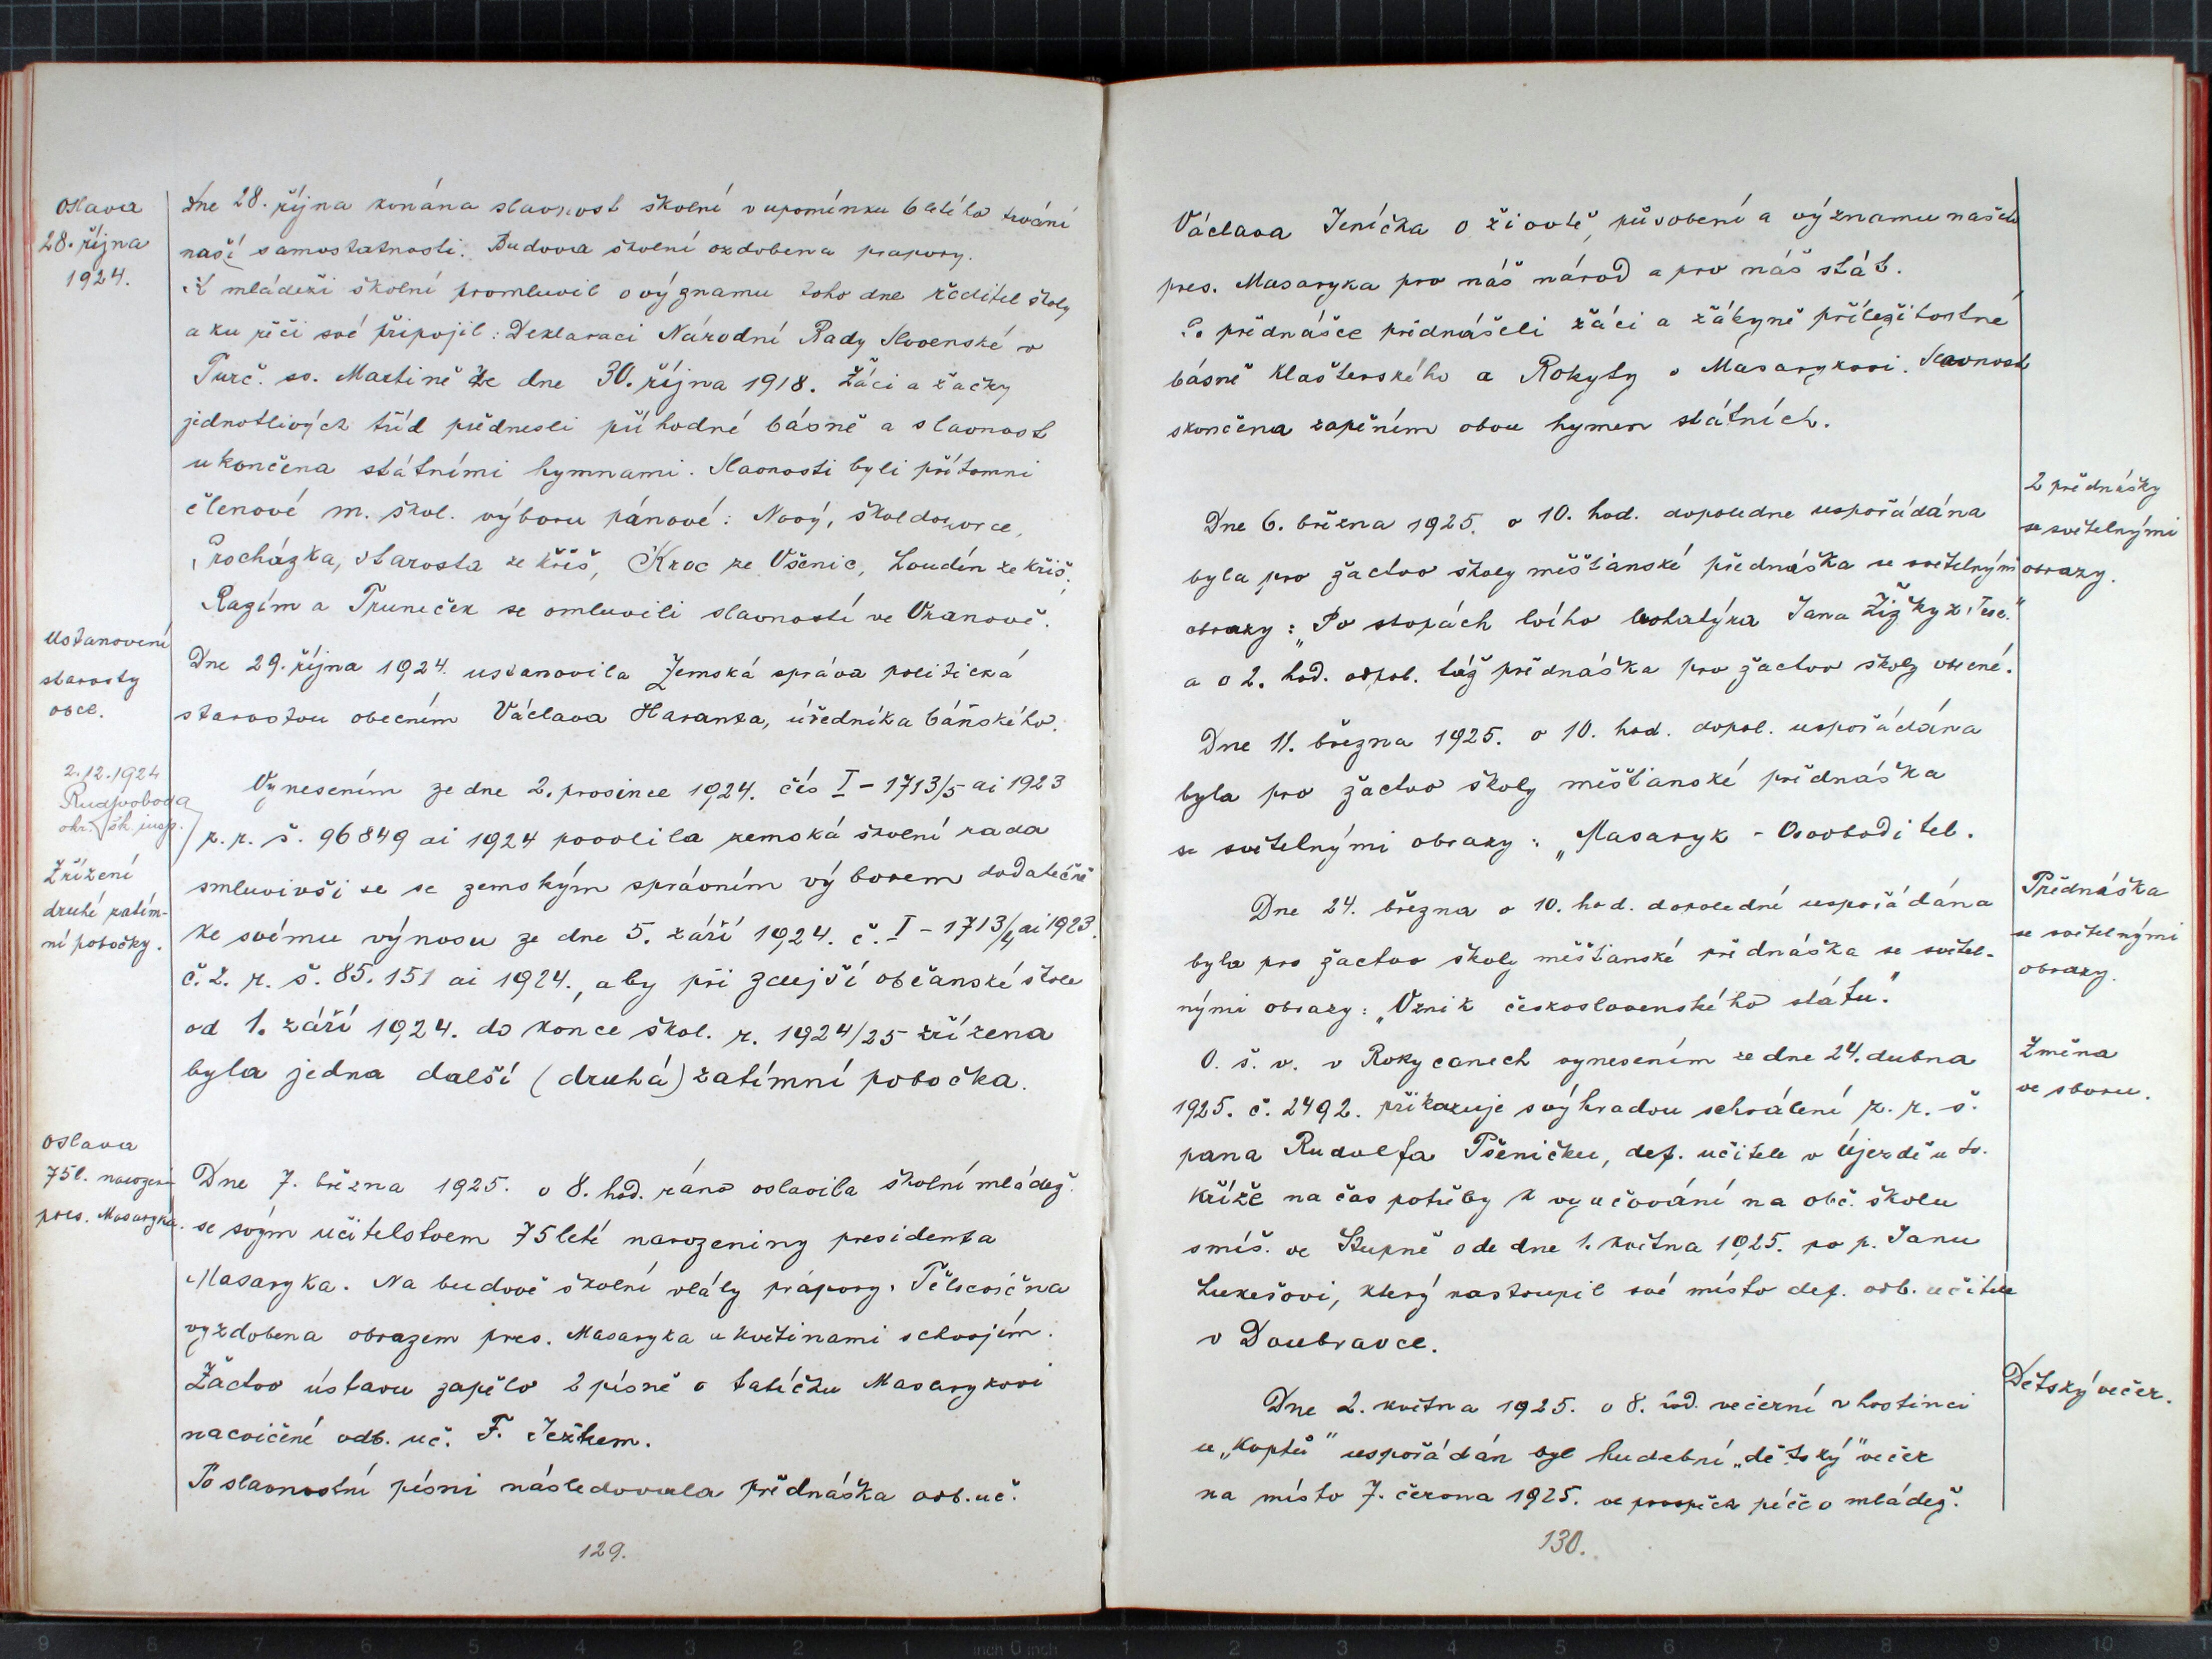 Oslava
28. října
1924.
Dne 28. října konána slavnost školní v upomínku 6letého trvání
naší samostatnosti. Budova školní ozdobena prapory.
K mládeži školní promluvil o významu toho dne ředitel školy
a ku řeči své připojil: Deklaraci Národní Rady Slovenské v
Turč. sv. Martině ze dne 30. října 1918. Žáci a žačky
jednotlivých tříd přednesli případné básně a slavnost
ukončena státními hymnami. Slavnosti byli přítomni
členové m. škol. výboru pánové: Nový, škol dozorce,
Procházka, starosta ze Kříš, Kroc ze Všenic, Loudín ze Kříš,
Razím a Truneček se omluvili slavností ve Vranově.
Ustanovení
starosty
obce.
Dne 29. října 1924. ustanovila Zemská správa politická
starostou obecním Václava Haranta, úředníka báňského.
2.12.1924
Rud. Svoboda
okr. šk. insp.
Zřízení
druhé zatím-
ní pobočky.
Vynesením ze dne 2. prosince 1924. čís I - 1713/5 ai 1923
z. r. š. 96849 ai 1924 povolila zemská školní rada
smluvivši se se zemským správním výborem dodatečně
ke svému výnosu ze dne 5. září 1924. č. I - 1713/4 ai 1923.
č. z. r. š. 85.151 ai 1924., aby při zdejší občanské škole
od 1. září 1924. do konce škol. r. 1924/25 zřízena
byla jedna další (druhá) zatímní pobočka.
Oslava
75l. narozenin
pres. Masaryka.
Dne 7. března 1925. o 8. hod. ráno oslavila školní mládež
se svým učitelstvem 75leté narozeniny presidenta
Masaryka. Na budově školní vlály prapory. Tělocvična
vyzdobena obrazem pres. Masaryka a květinami s chvojím.
Žactvo ústavu zapělo 2 písně o tatíčku Masarykovi
nacvičené odb. uč. F. Ježkem.
Po slavnostní písni následovala přednáška odb. uč.
129.
Václava Jeníčka o životě, působení a významu našeho
pres. Masaryka pro náš národ a pro náš stát.
Po přednášce přednášeli žáci a žákyně příležitostné
básně Klášterského a Rokyty o Masarykovi. Slavnost
skončena zapěním obou hymen státních.
2 přednášky
se světelnými
obrazy.
Dne 6. března 1925. o 10. hod. dopoledne uspořádána
byla pro žactvo školy měšťanské přednáška se světelnými
obrazy: „Po stopách lvího bohatýra Jana Žižky z Troc."
a o 2. hod. odpol. táž přednáška pro žactvo školy obecné.
Dne 11. března 1925. o 10. hod. dopol. uspořádána
byla pro žactvo školy měšťanské přednáška
se světelnými obrazy: „Masaryk - Osvoboditel.
Přednáška
se světelnými
obrazy.
Dne 24. března o 10. hod. dopolední uspořádána
byla pro žactvo školy měšťanské přednáška se světel-
nými obrazy: „Vznik československého státu."
Změna
ve sboru.
O. š. v. v Rokycanech vynesením ze dne 24. dubna
1925. č. 2492. přikazuje s výhradou schválení z. r. š.
pana Rudolfa Pšeničku, def. učitele v Újezdě u sv.
Kříže na čas potřeby k vyučování na obč. školu
smíš. ve Stupně ode dne 1. května 1925. po p. Janu
Lukešovi, který nastoupil své místo def. odb. učitele
v Doubravce.
Dětský večer.
Dne 2. května 1925. o 8. hod. večerní v hostinci
u „Koptů" uspořádán byl hudební „dětský" večer
na místo 7. června 1925. ve prospěch péče o mládež.
130.